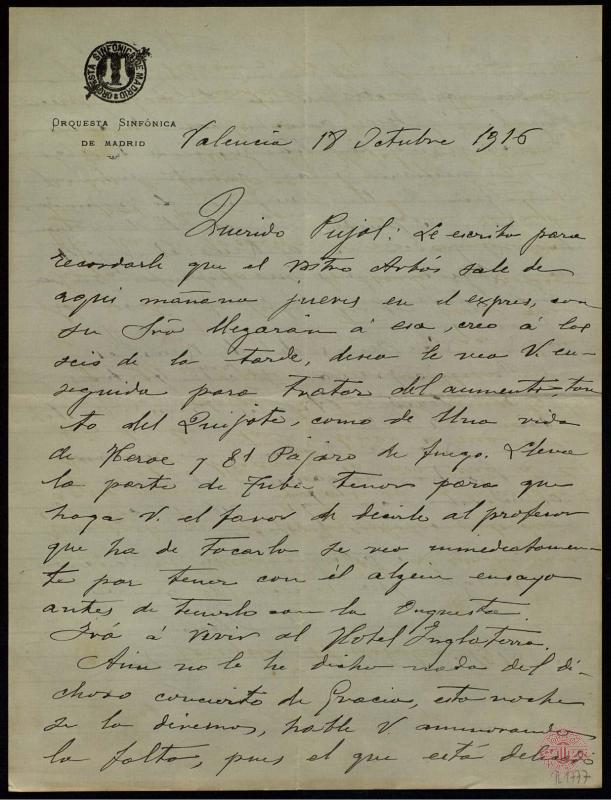 ORQUESTA SINFÓNICA DE MADRID
ORQUESTA SINFÓNICA
DE MADRID
Valencia 18 Octubre 1916
Querido Pujol: Le escribo para
recordarle que el Mtro Arbós sale de
aqui mañana jueves en el expres, con
su Sra llegarán á esa, creo á las
seis de la tarde, desea le vea V. en-
seguida para tratar del aumento, tan
to del Quijote, como de Una vida
de Heroe y El Pájaro de fuego. Lleva
la parte de Tuba tenor para que
haga V. el favor de decirle al profesor
que ha de tocarla se vea inmediatamen-
te por tener con él algún ensayo
antes de tenerlo con la Orquesta.
Irá á vivir al Hotel Inglaterra.
Aun no le he dicho nada del di-
choso concierto de Gracia, esta noche
se lo diremos, hable V. aminorando
la falta, pues el que está
R.1777